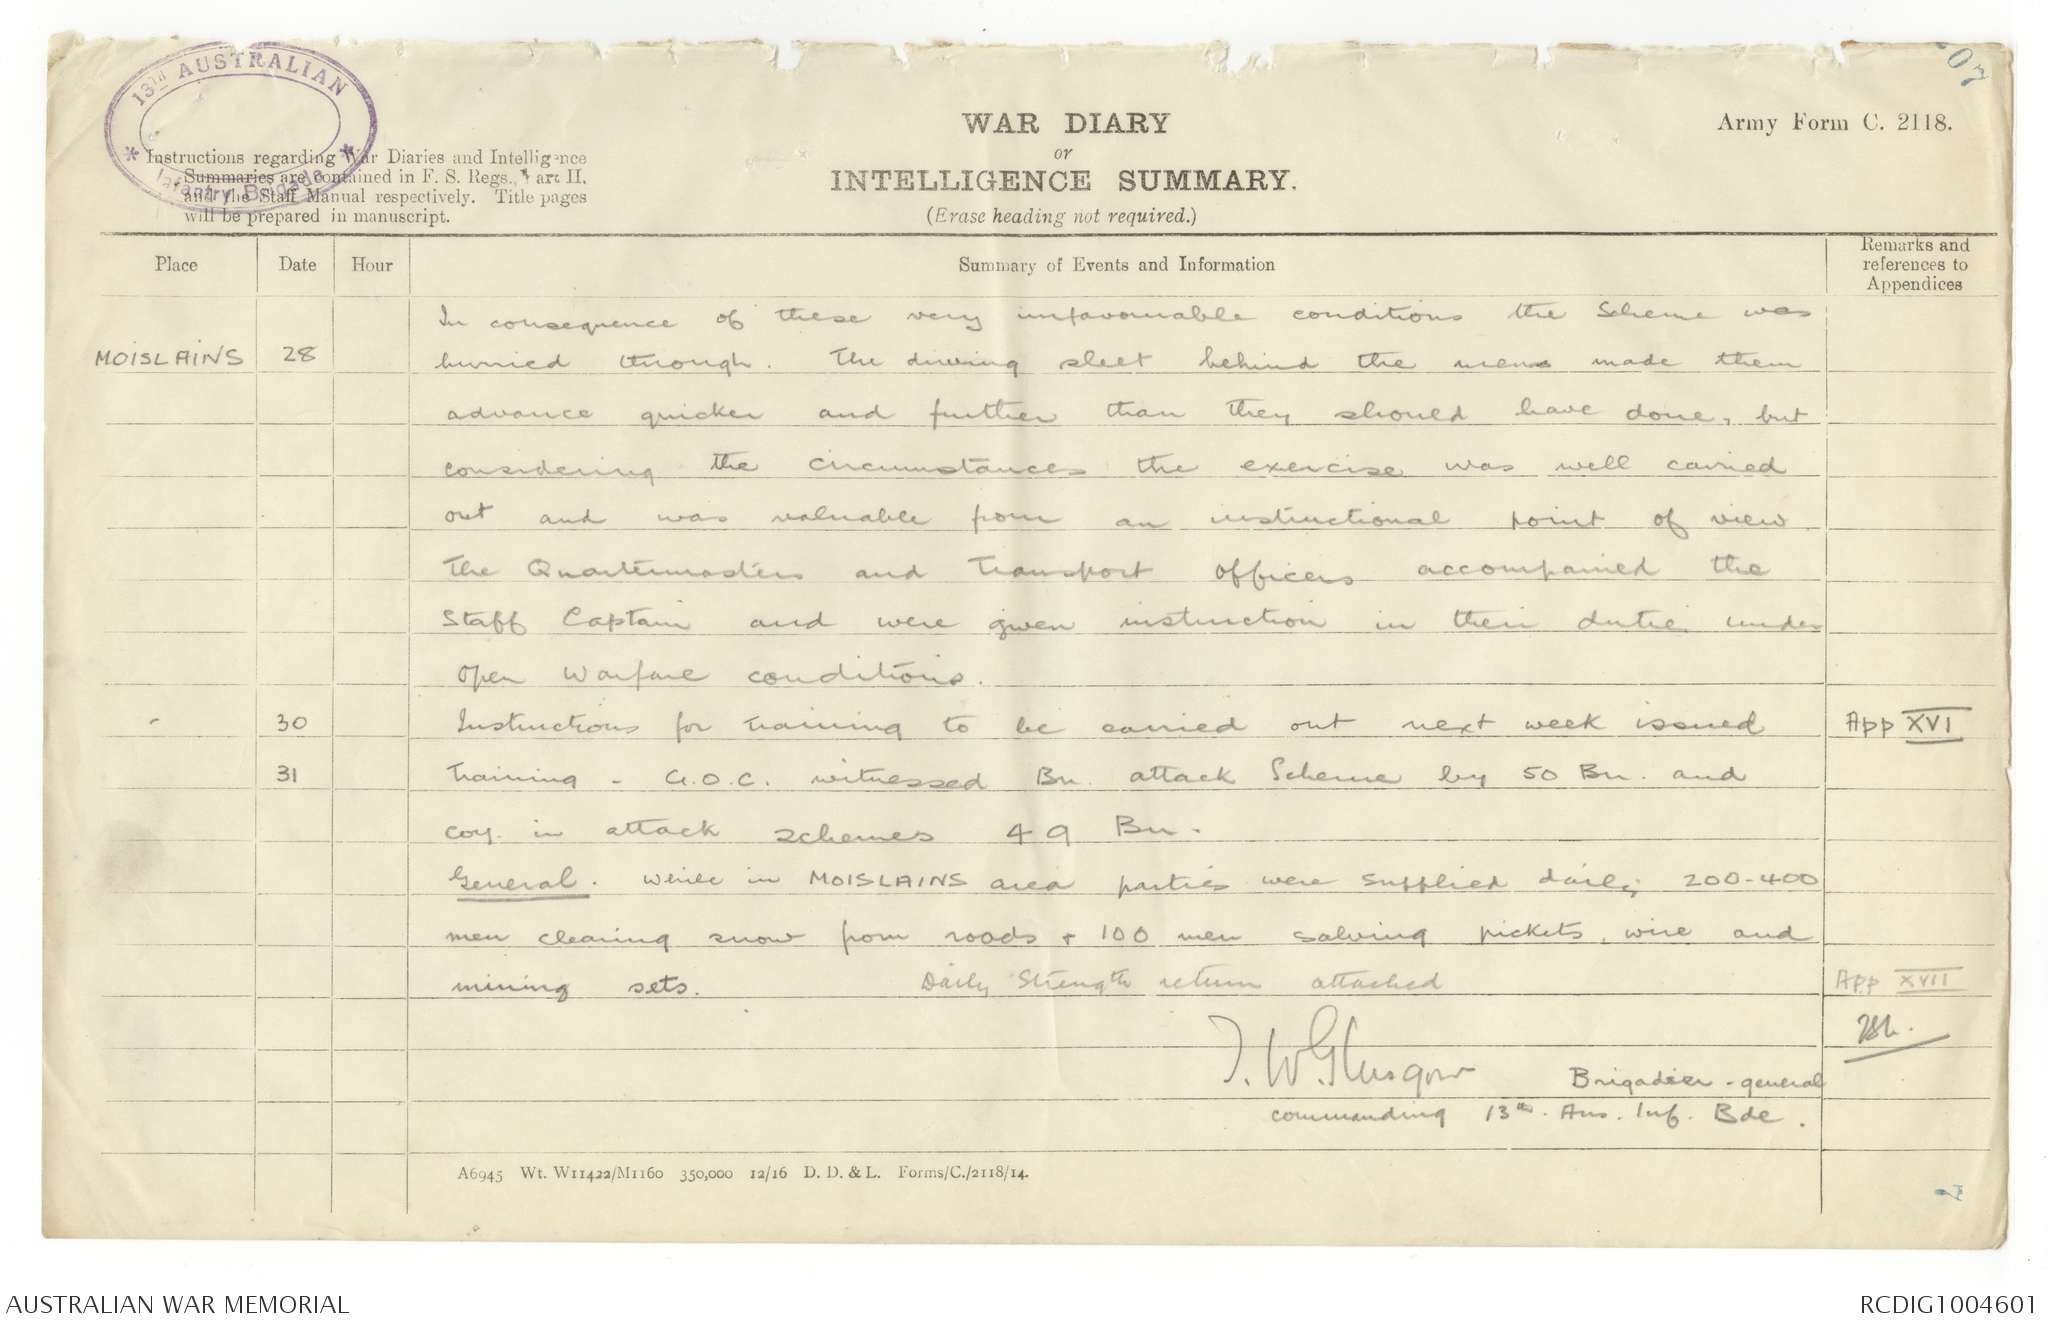 13th AUSTRALIAN
Infantry Brigade
07
WAR DIARY
or
INTELLIGENCE SUMMARY.
(Erase heading not required.)
Army Form C. 2118.
Instructions regarding War Diaries and Intelligence
Summaries are contained in F. S. Regs., Part II,
and the Staff Manual respectively. Title pages
will be prepared in manuscript.
Place Date Hour Summary of Events and Information Remarks and references to Appendices
In consequence of these very unfavourable conditions the Scheme was
MOISLAINS 28 hurried through. The driving sleet behind the mens made them
advance quicker and further than they should have done, but
considering the circumstances the exercise was well carried
out and was valuable from an instructional point of view
The Quartermasters and Transport Officers accompanied the
Staff Captain and were given instruction in their duties under
open warfare conditions.
" 30 Instructions for training to be carried out next week issued App XVI
31 Training - G.O.C. witnessed Bn. attack Scheme by 50 Bn. and
coy. in attack schemes 49 Bn.
General. While in MOISLAINS area parties were supplied daily 200-400
men clearing snow from roads + 100 men salving pickets, wire and
mining sets. Daily Strength return attached App XVII
T. W. Glasgow Brigadier-general
commanding 13th. Aus. Inf. Bde.
A6945 Wt. W11422/M1160 350,000 12/16 D. D. & L. Forms/C./2118/14.
AUSTRALIAN WAR MEMORIAL
RCDIG1004601